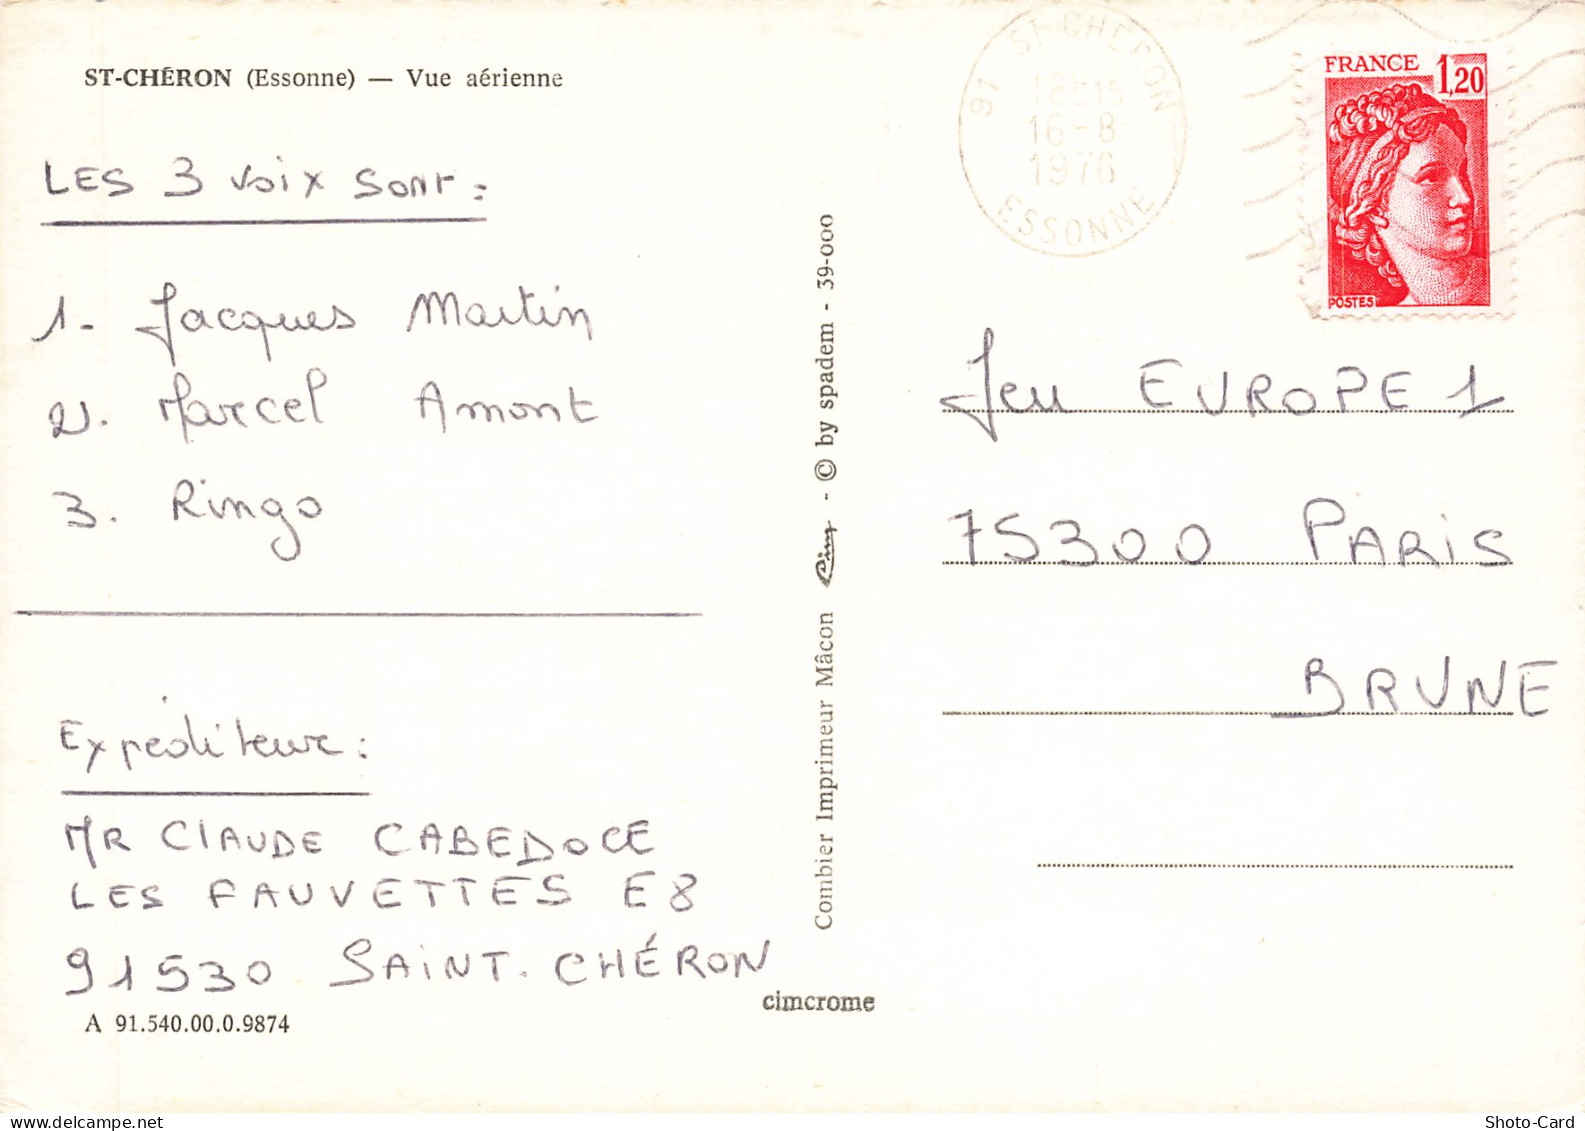 ST-CHÉRON (Essonne) — Vue aérienne
LES 3 voix sont :
1- Jacques Martin
2. Marcel Amont
3. Ringo
Expéditeur :
MR CLAUDE CABEDOCE
LES FAUVETTES E8
91530 SAINT-CHÉRON
A 91.540.00.0.9874
Combier Imprimeur Mâcon Cim - © by spadem - 39-000
cimcrome
91 ST-CHERON
18H15
16-8
ESSONNE
FRANCE 1,20
POSTES
Jeu EUROPE 1
75300 PARIS
BRUNE
Shoto-Card